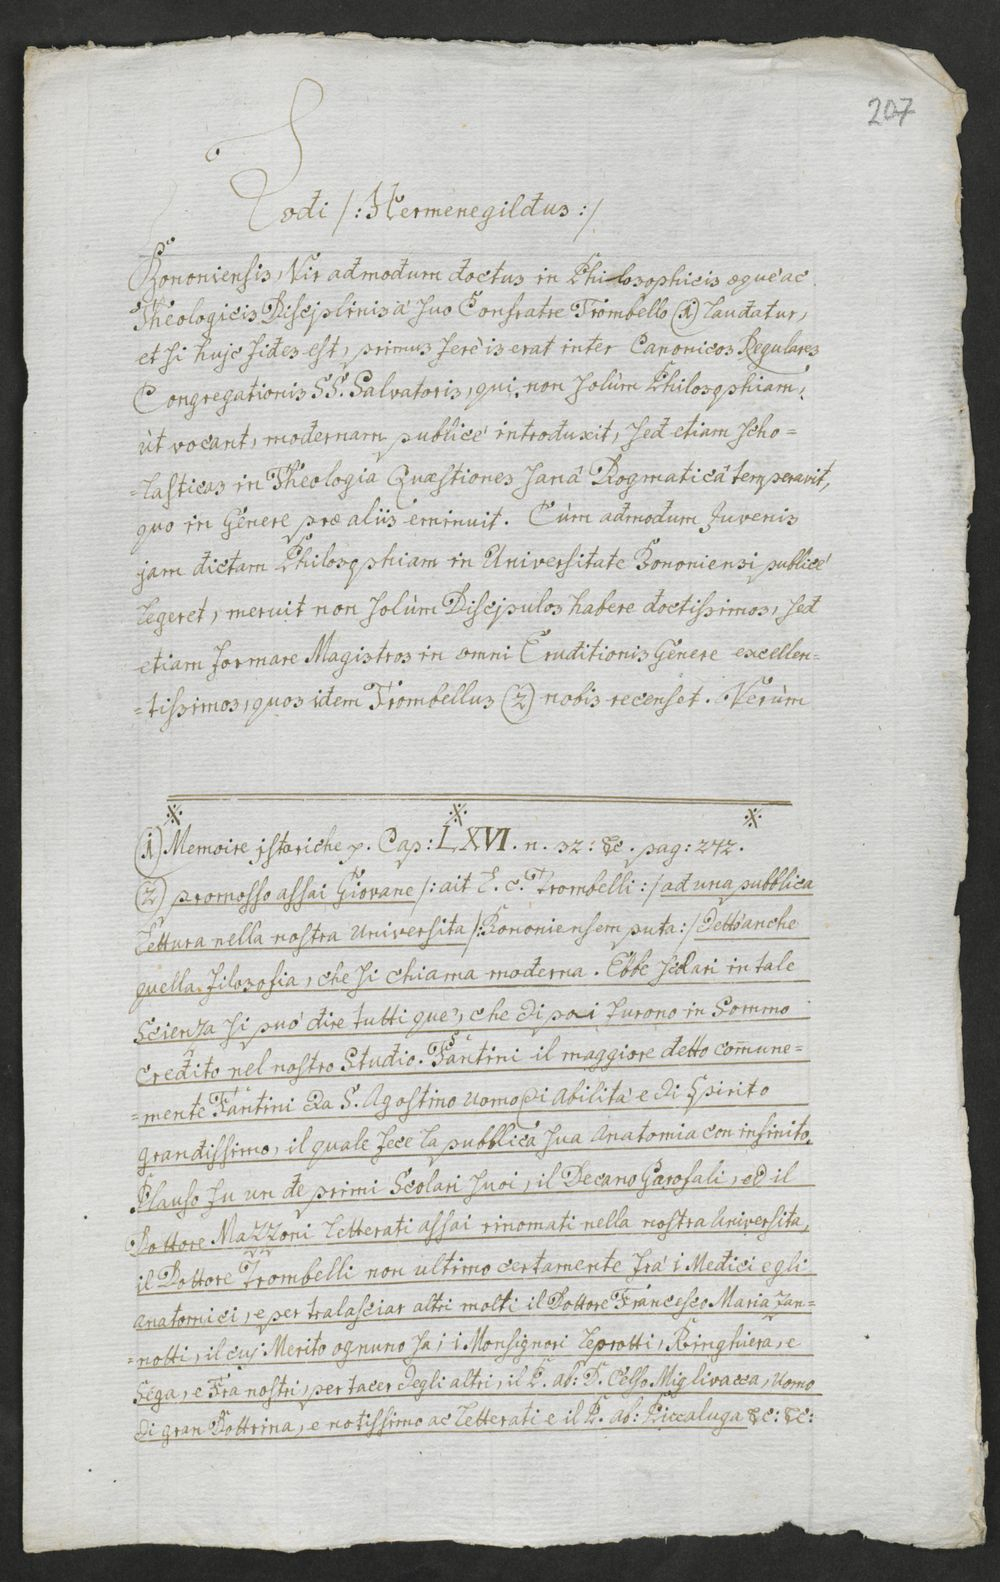 207
Todi /: Hermenegildus :/
Bononiensis, Vir admodum doctus in Philosophicis æque ac
Theologicis Discjplinis à suo Confratre Trombello (1) laudatur,
et si hujc fides est, primus ferè is erat inter Canonicos Regulares
Congregationis SS. Salvatoris, qui non solùm Philosophiam,
ùt vocant, modernam publicè introduxit, sed etiam scho=
=lasticas in Theologia Quæstiones sanâ Dogmaticâ temperavit,
quo in Genere præ aliis eminuit. Cùm admodum Juvenis
jam dictam Philosophiam in Universitate Bononiensi publicè
legeret, meruit non solùm Discjpulos habere doctissimos, sed
etiam formare Magistros in omni Eruditionis Genere excellen=
=tissimos, quos idem Trombellus (2) nobis recenset. Verùm
(1) Memoire jstoriche p. Cap: LXVI. n. 32: &c. pag: 242.
(2) promosso assai Giovane /: ait E. c. Trombelli :/ ad una pubblica
Lettura nella nostra Universita /: Bononiensem puta :/ Dettò anche
quella Filosofia, che si chiama moderna. Ebbe scolari in tale
Scienza si può dire tutti que', che di poi furono in Sommo
credito nel nostro Studio. Fantini il maggiore detto com̄une=
=mente Fantini da S. Agostino uomo di Abilità e di Spirito
grandissimo, il quale fece la pubblica sua Anatomia con infinito
Plauso fu un de primi Scolari suoi, il Decano Garofali, ed il
Dottore Mazzoni Letterati assai rinomati nella nostra Universita,
il Dottore Trombelli non ultimo certamente frà i Medici e gli
anatomici, e per tralasciar altri molti il Dottore Francesco Maria Zan=
=notti, il cuj Merito ognuno sa; i Monsignori Leprotti, Ringhiera, e
Sega, e Frà nostri, per tacer degli altri, il P. ab: D. Celso Miglivacca, Uomo
di gran Dottrina, e notissimo ac Letterati e il P. ab: Piccaluga &c: &c: